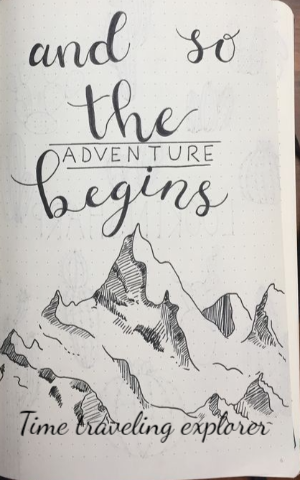 and so
the
ADVENTURE
begins
Time traveling explorer